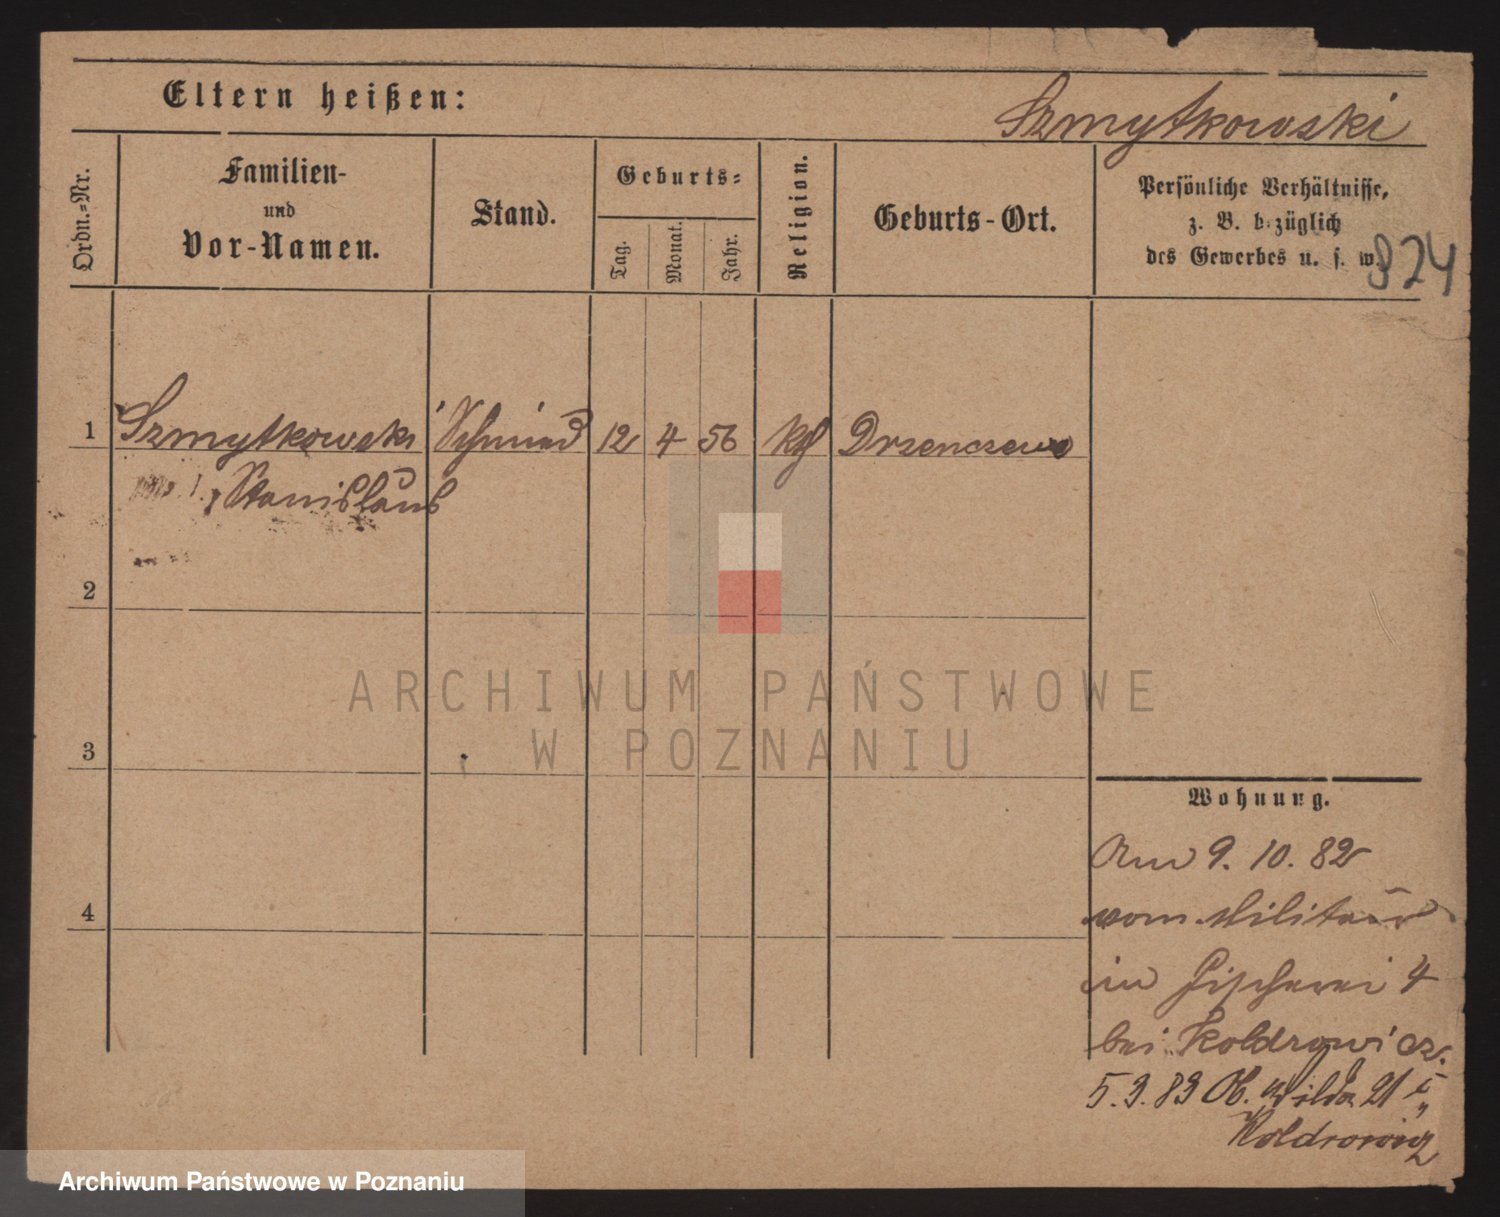 Eltern heißen:
Szmytkowski
Ordn.=Nr.
Familien-
und
Vor-Namen.
Stand.
Geburts=
Tag.
Monat.
Jahr.
Religion.
Geburts-Ort.
Persönliche Verhältnisse,
z. B. bezüglich
des Gewerbes u. s. w.
324
1 Szmytkowski Schmied 12 4 56 kth Drzenczewo
Stanislaus
2
3
4
Wohnung.
Am 9. 10. 82
vom Militair
in Fischerei 4
bei Koldrowicz.
5.3.83 Ob. Wilda 21 I
Koldrowicz
ARCHIWUM PAŃSTWOWE
W POZNANIU
Archiwum Państwowe w Poznaniu